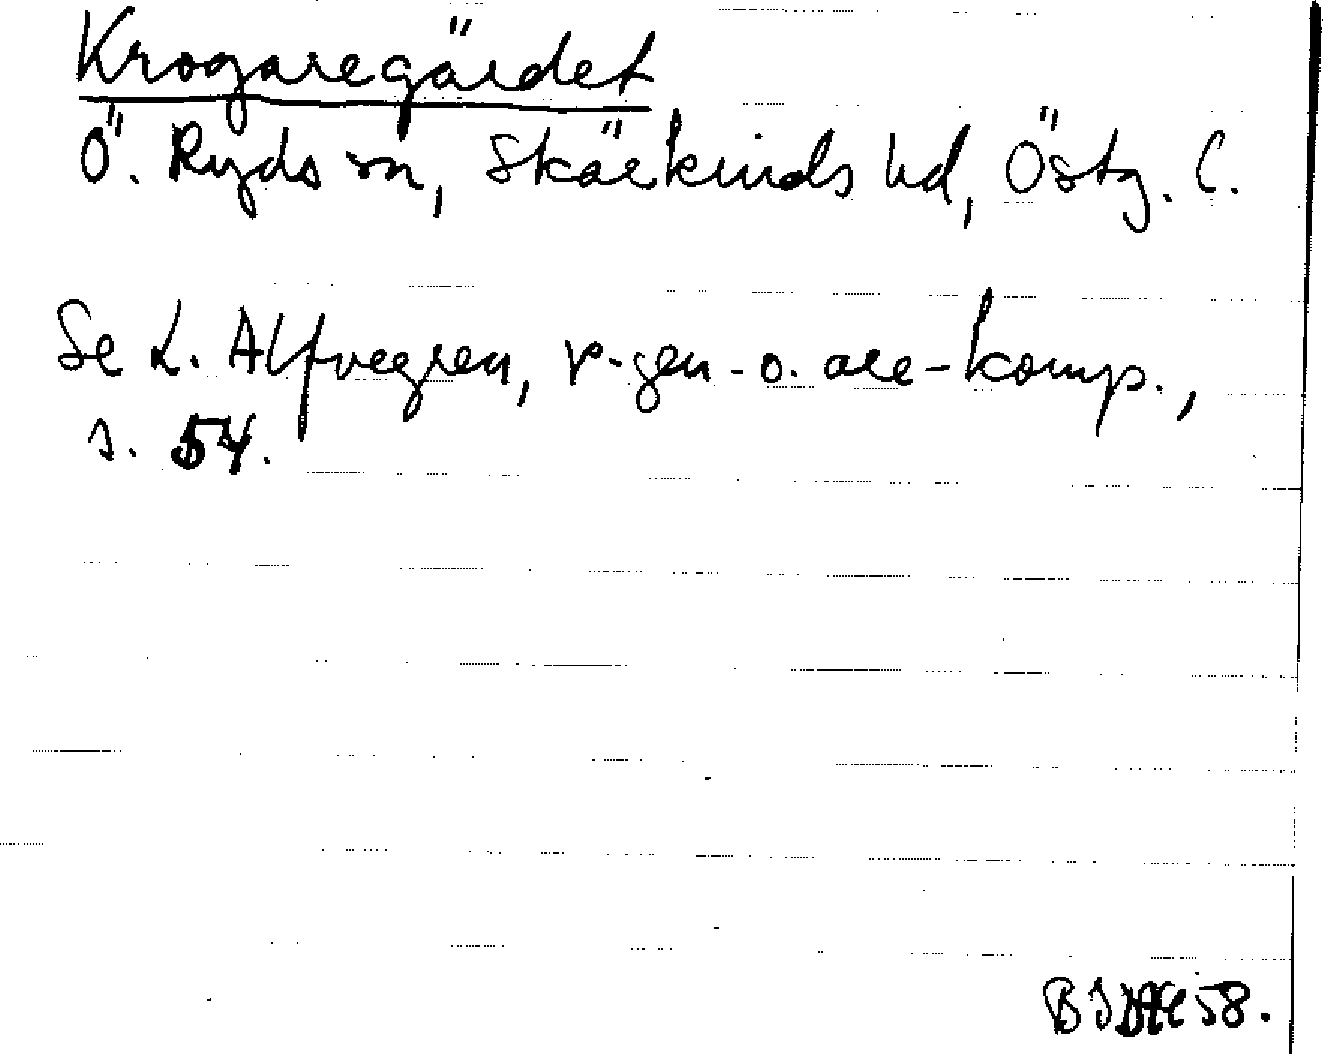 Krogaregärdet
Ö. Ryds sn, Skärkinds hd, Östg. l.
Se L. Alfvegren, r-gen- o. are-komp.,
s. 54.
58.